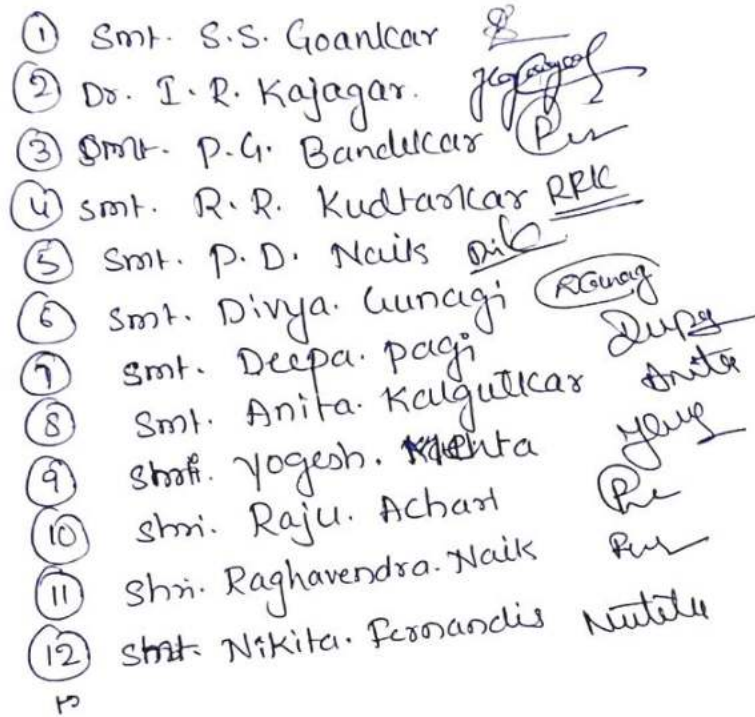 1 Smt. S.S. Goankar
2 Dr. I. R. Kajagar.
3 Smt. P.G. Bandekar
4 smt. R. R. Kudtarkar RRK
5 Smt. P. D. Naik
6 smt. Divya. Gunagi RGunag
7 smt. Deepa. pagi Dupa
8 Smt. Anita. Kalgutkar Anita
9 Shri. Yogesh.
10 Shri. Raju. Achari
11 Shri. Raghavendra. Naik
12 Smt. Nikita. Fernandis